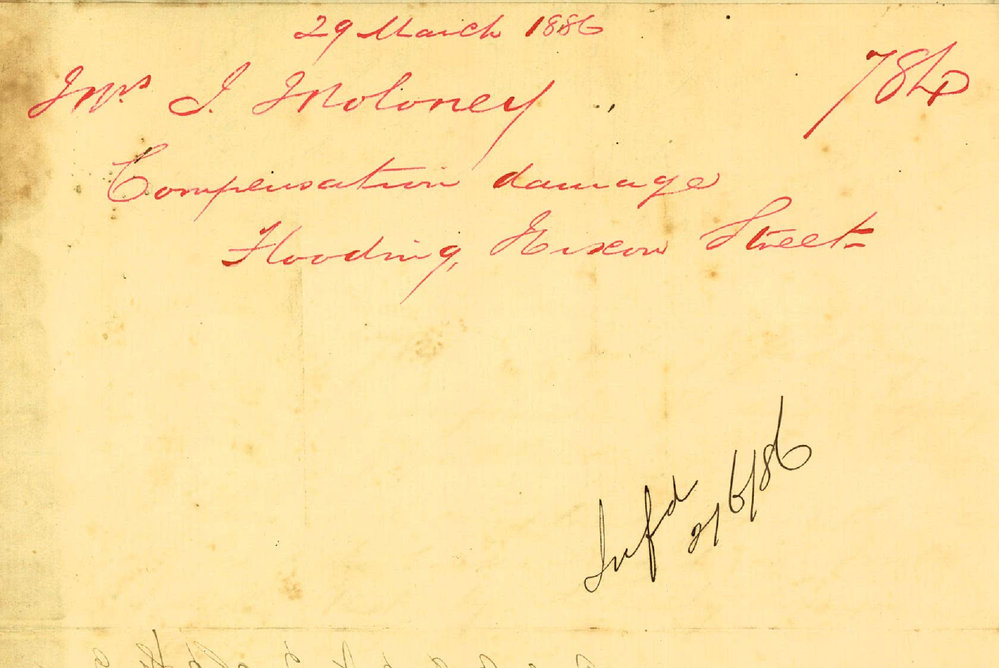 29 March 1886
Mrs J. Moloney
784
Compensation damage
Flooding, Nixon Street
Infd
2/6/86